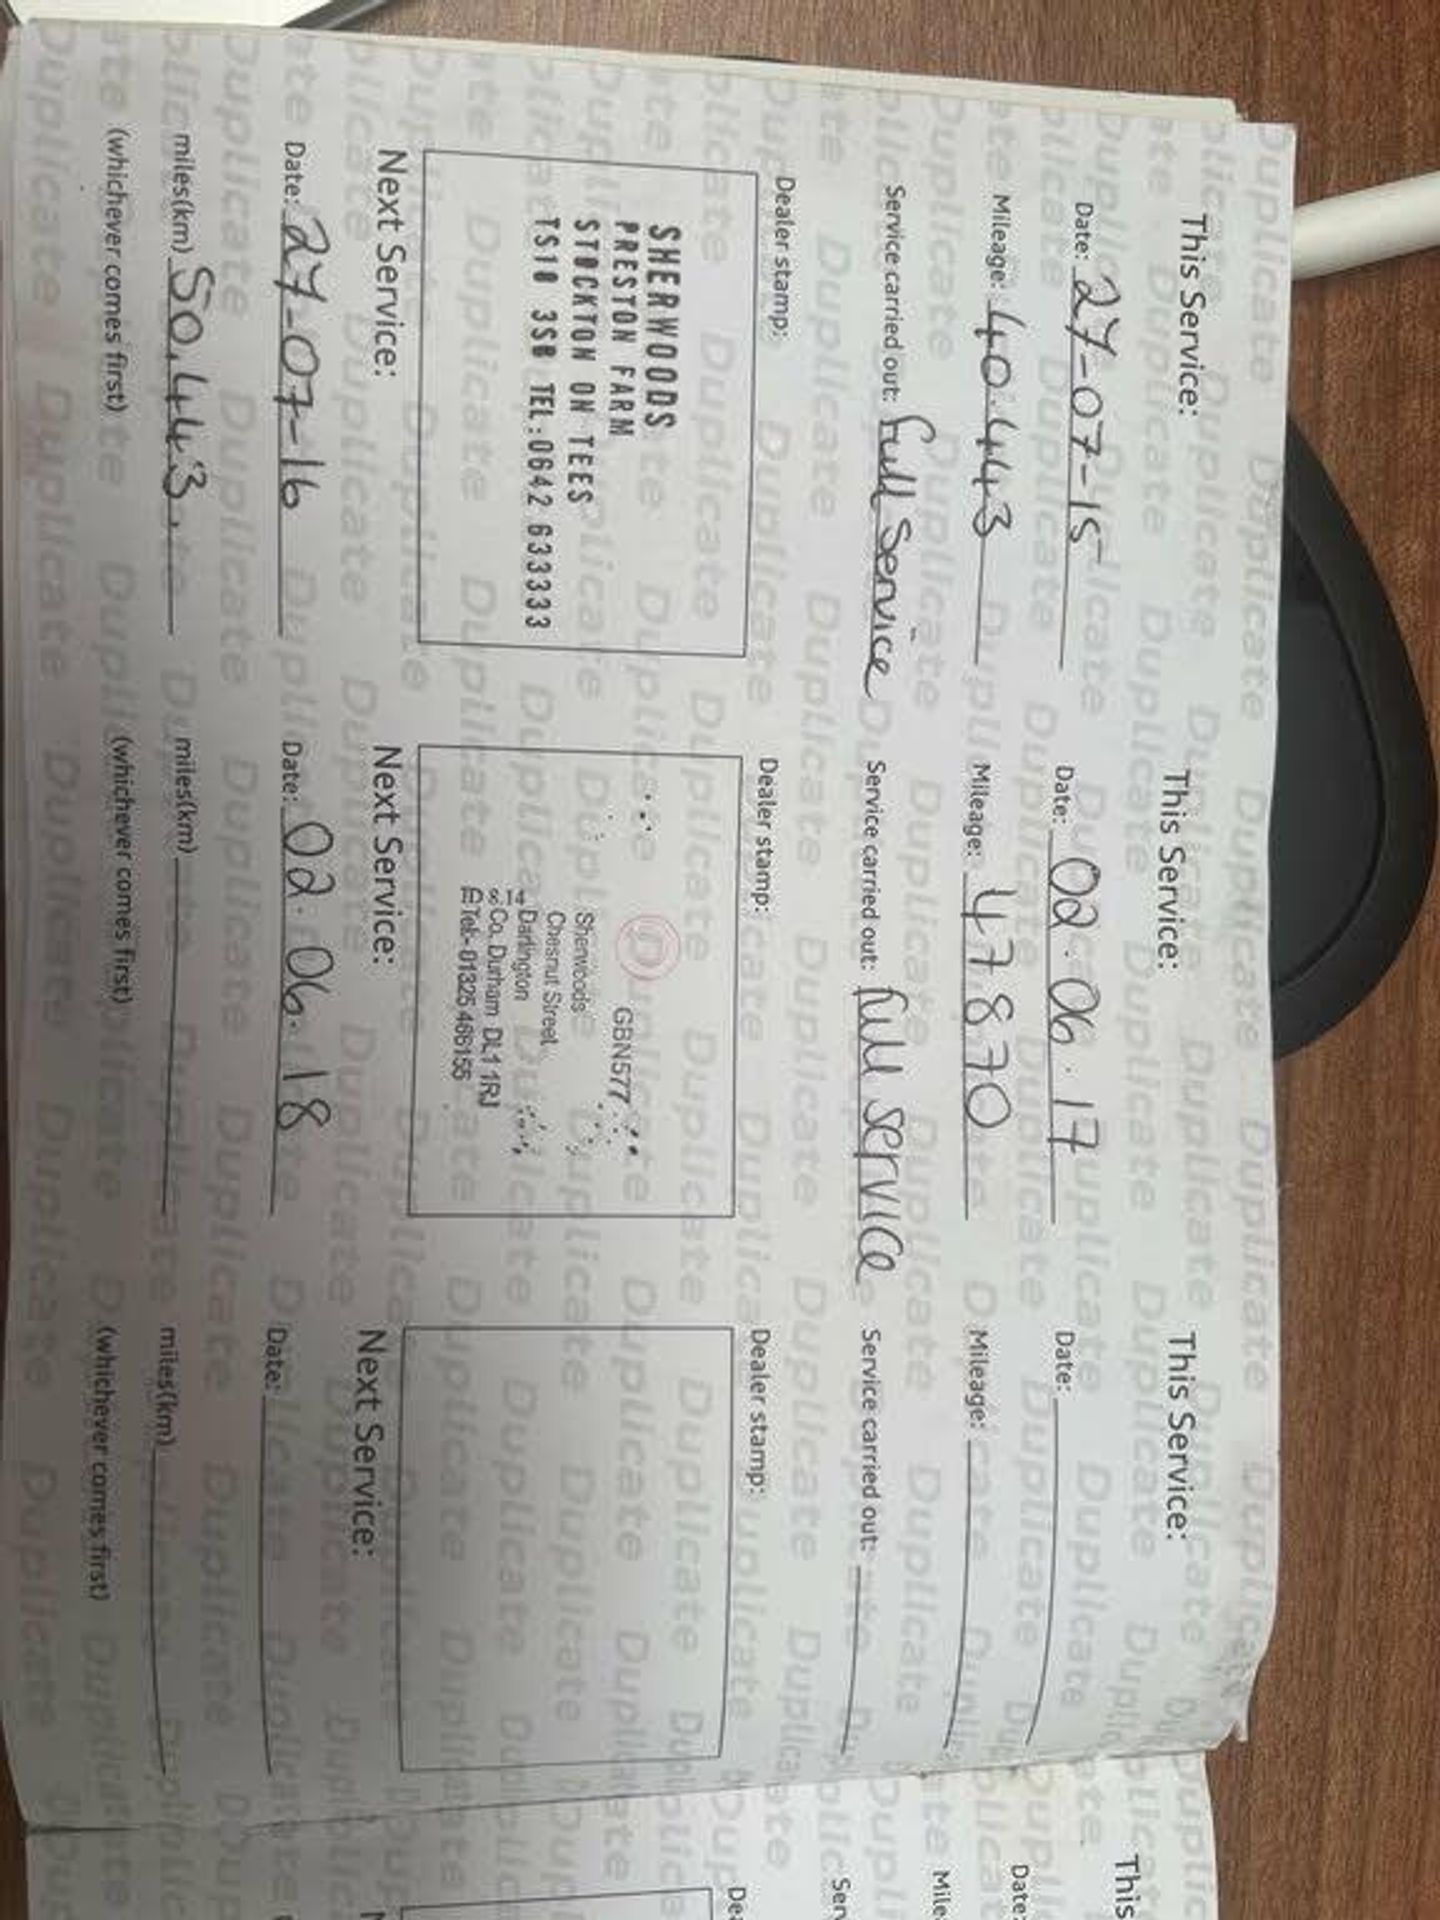 This Service:
Date: 27-07-15
Mileage: 40.443
Service carried out: full Service
Dealer stamp:
SHERWOODS
PRESTON FARM
STOCKTON ON TEES
TS18 3SB TEL:0642 633333
Next Service:
Date: 27-07-16
miles(km) 50,443.
(whichever comes first)
This Service:
Date: 02.06.17
Mileage: 47870
Service carried out: full service
Dealer stamp:
GBN577
Sherwoods
Chesnut Street
Darlington
Co. Durham DL1 1RJ
Tel:- 01325 466155
Next Service:
Date: 02.06.18
miles(km)
(whichever comes first)
This Service:
Date:
Mileage:
Service carried out:
Dealer stamp:
Next Service:
Date:
miles(km)
(whichever comes first)
This
Date:
Mile
Serv
Dea
Duplicate Duplicate Duplicate Duplicate Duplicate